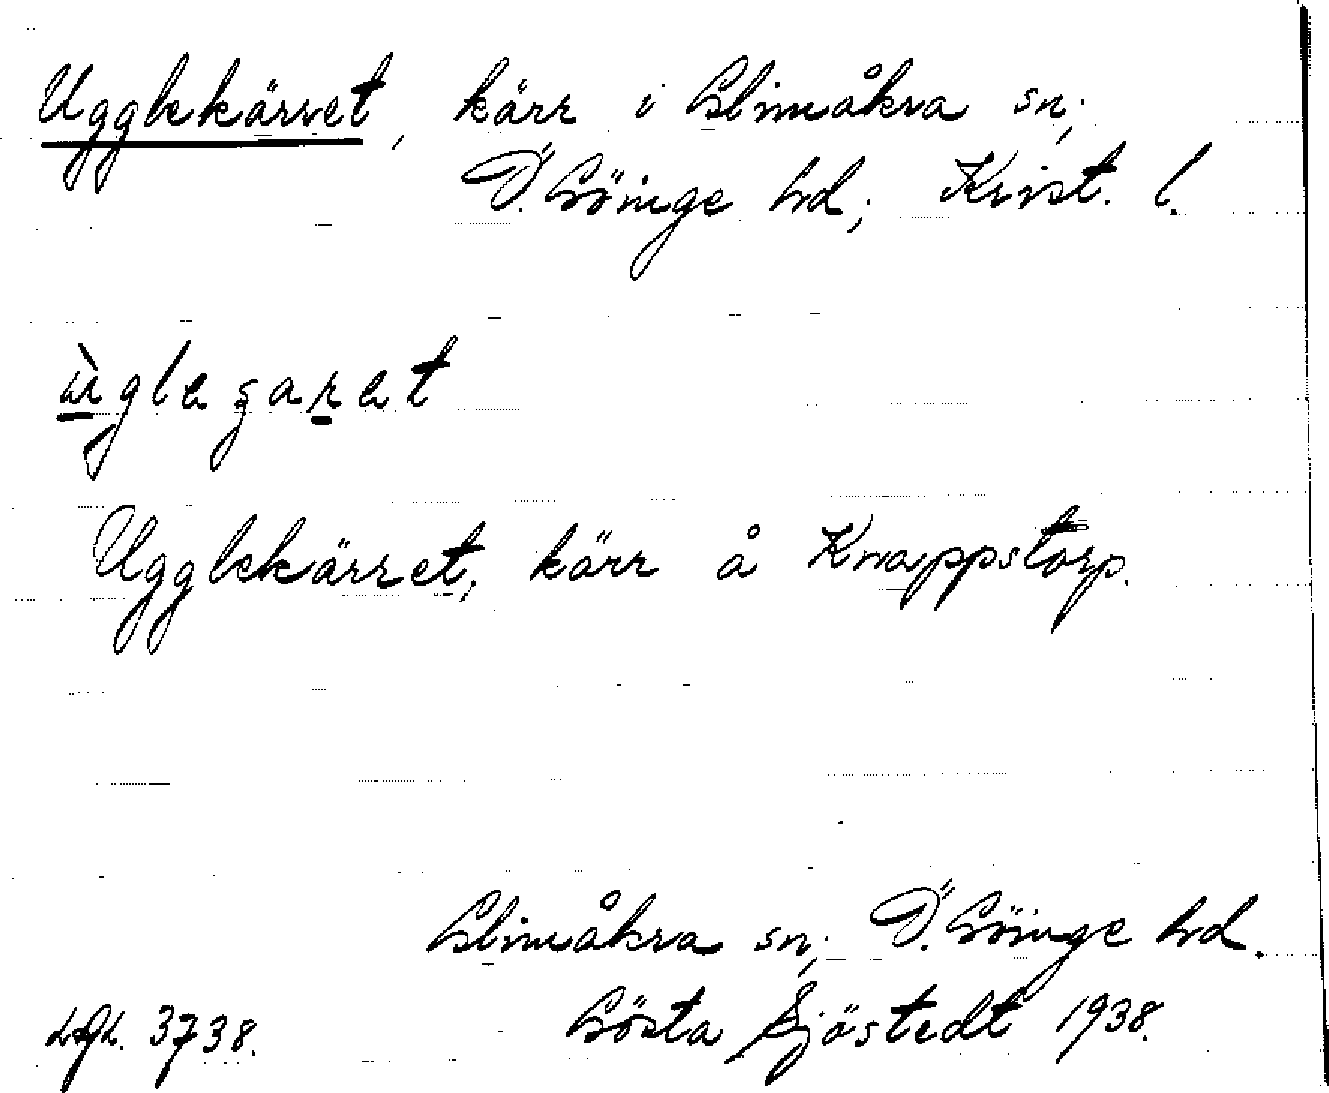 Ugglekärret, kärr i Glimåkra sn;
Ö. Göinge hd; Krist. l.
ùgleʂaret
Ugglekärret; kärr å Knappstorp.
Glimåkra sn; Ö. Göinge hd.
Gösta Sjöstedt 1938.
3738.